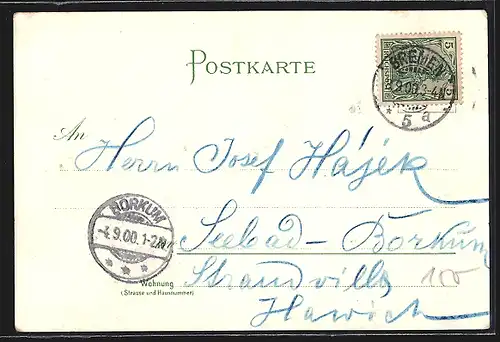 POSTKARTE
5 5
BREMEN
9.00.3-4N
* 5 a
An
Herrn Josef Hájek
BORKUM
-4.9.00.1-2N
* * *
Seebad-Borkum
Strandvilla 100
Wohnung
(Strasse und Hausnummer)
Hawich